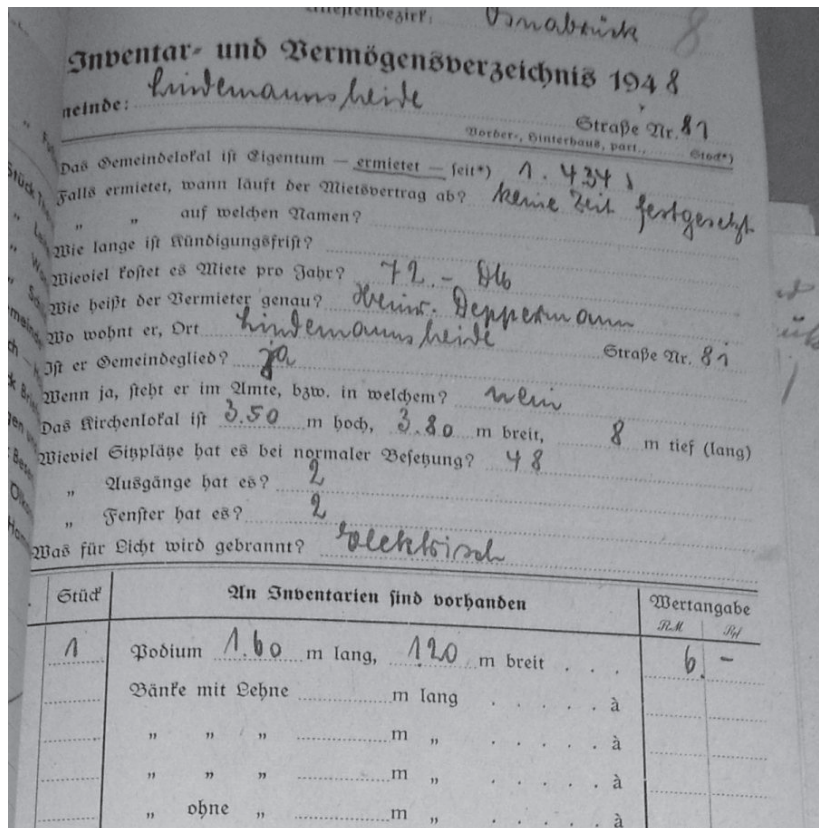 Ältestenbezirk: Osnabrück 8
Inventar- und Vermögensverzeichnis 1948
meinde: Lindemannsheide Straße Nr. 81
Vorder-, Hinterhaus, part., Stock*)
Das Gemeindelokal ist Eigentum — ermietet — seit*) 1.
Falls ermietet, wann läuft der Mietsvertrag ab? keine Zeit festgesetzt
„ „ auf welchen Namen?
Wie lange ist Kündigungsfrist?
Wieviel kostet es Miete pro Jahr? 72.-
Wie heißt der Vermieter genau? Heinr. Deppermann
Wo wohnt er, Ort Lindemannsheide Straße Nr. 81
Ist er Gemeindeglied? ja
Wenn ja, steht er im Amte, bzw. in welchem? nein
Das Kirchenlokal ist 3.50 m hoch, 3.80 m breit, 8 m tief (lang)
Wieviel Sitzplätze hat es bei normaler Besetzung? 48
„ Ausgänge hat es? 2
„ Fenster hat es? 2
Was für Licht wird gebrannt? elektrisch
Stück An Inventarien sind vorhanden Wertangabe
RM Rpf
1 Podium 1.60 m lang, 1.20 m breit . . . 6. -
Bänke mit Lehne m lang . . . . . à
„ „ „ m „ . . . . . à
„ „ „ m „ . . . . . à
„ ohne „ m „ . . . . . à